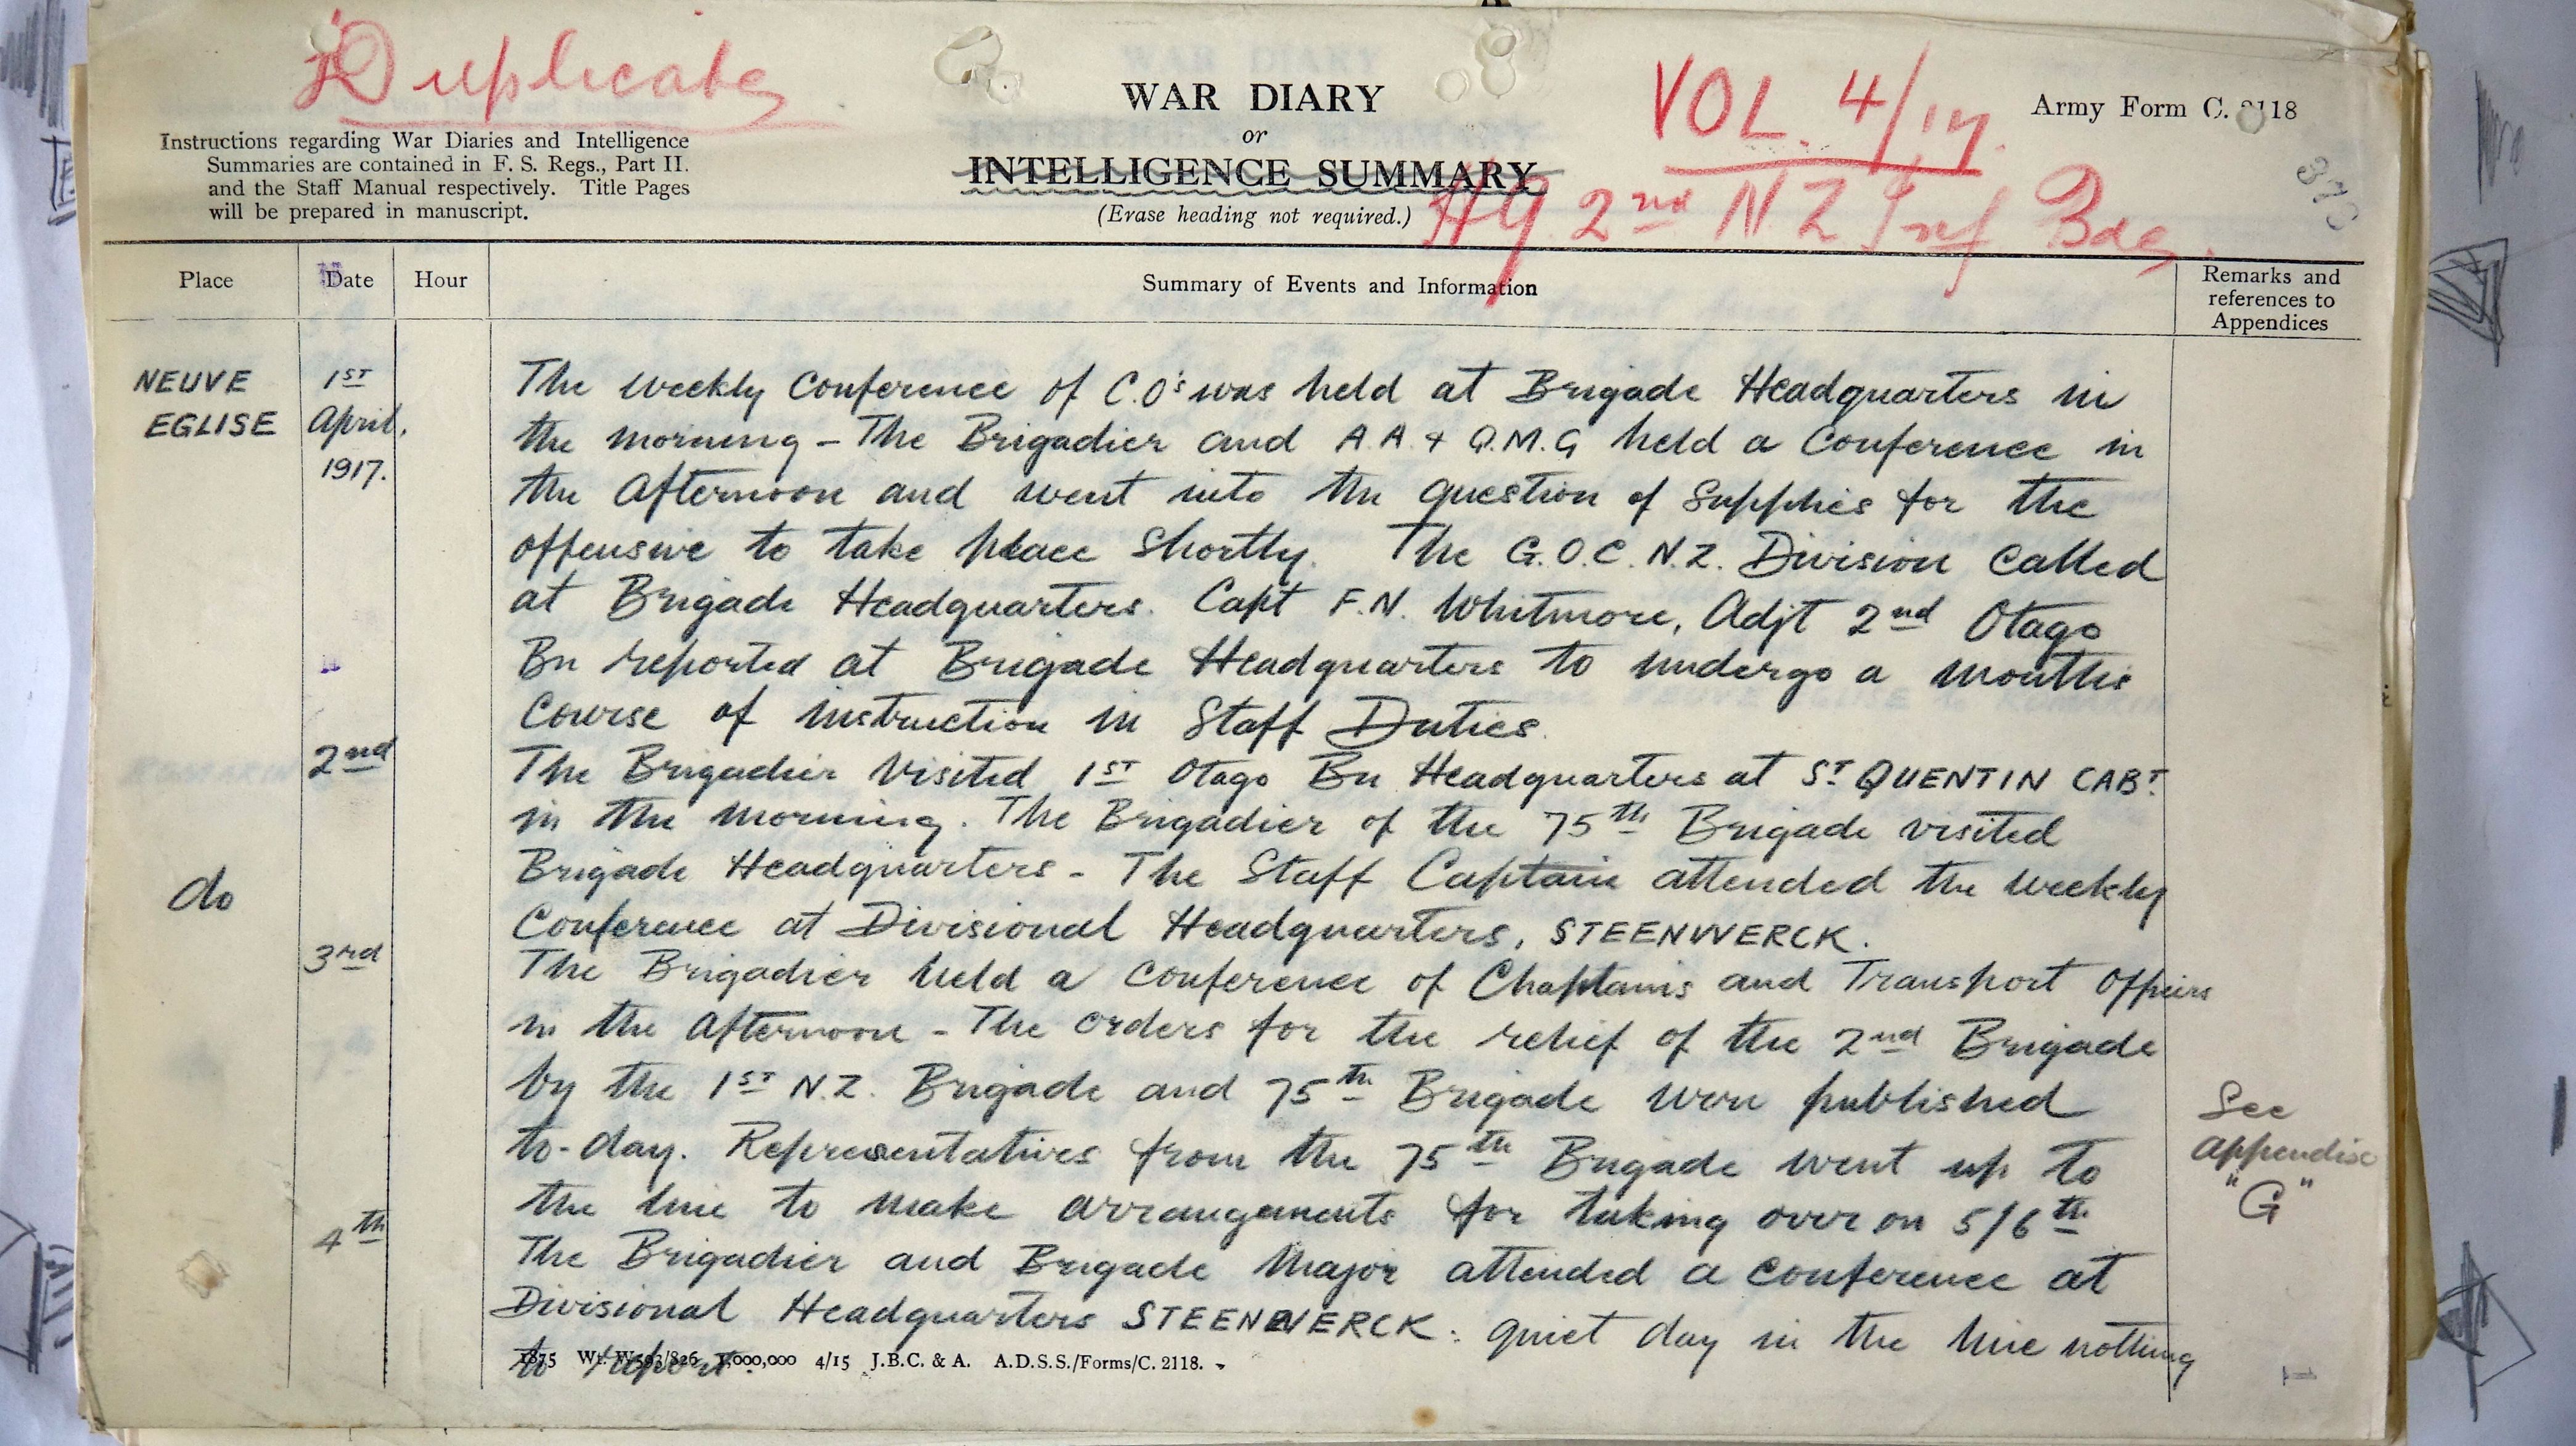 Duplicate
WAR DIARY
or
INTELLIGENCE SUMMARY
(Erase heading not required.)
VOL. 4/17.
HQ 2nd NZ Inf Bde.
Army Form C. 2118
Instructions regarding War Diaries and Intelligence
Summaries are contained in F. S. Regs., Part II.
and the Staff Manual respectively. Title Pages
will be prepared in manuscript.
Place
Date
Hour
Summary of Events and Information
Remarks and
references to
Appendices
NEUVE
EGLISE
1ST
April.
1917.
The weekly Conference of C.O's was held at Brigade Headquarters in
the morning - The Brigadier and A.A. & Q.M.G held a Conference in
the afternoon and went into the question of Supplies for the
offensive to take place shortly. The G.O.C. N.Z. Division called
at Brigade Headquarters. Capt F.N. Whitmore, Adjt 2nd Otago
Bn reported at Brigade Headquarters to undergo a months
Course of instruction in Staff Duties.
2nd
The Brigadier visited 1ST Otago Bn Headquarters at ST QUENTIN CABT.
in the morning. The Brigadier of the 75th Brigade visited
Brigade Headquarters - The Staff Captain attended the weekly
Conference at Divisional Headquarters, STEENWERCK.
do
3rd
The Brigadier held a conference of Chaplains and Transport Officers
in the afternoon - The orders for the relief of the 2nd Brigade
by the 1ST N.Z. Brigade and 75th Brigade were published
to-day. Representatives from the 75th Brigade went up to
the line to make arrangements for taking over on 5/6th
See
Appendix
"G"
4th
The Brigadier and Brigade Major attended a conference at
Divisional Headquarters STEENWERCK: quiet day in the line nothing
to report.
1875 Wt. W593/826 1,000,000 4/15 J.B.C. & A. A.D.S.S./Forms/C. 2118.